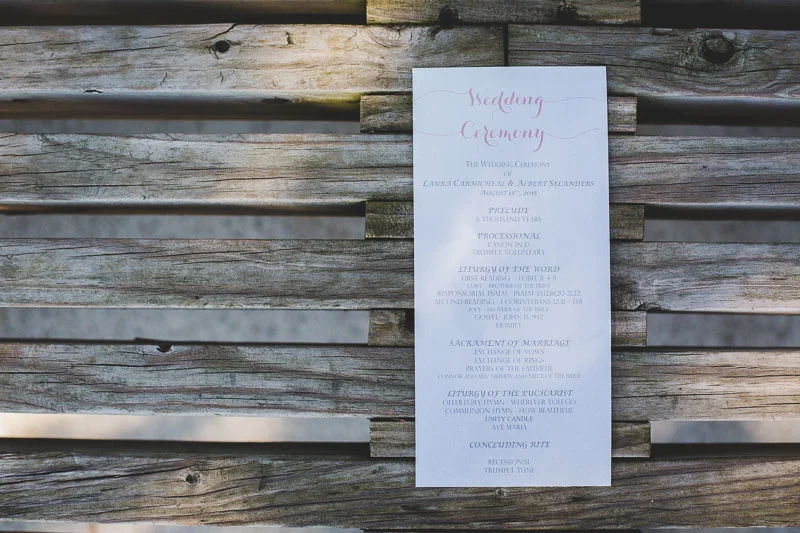 Wedding
Ceremony
The Wedding Ceremony
of
Laura Carmicheal & Albert Selanders
August 1st, 2015
PRELUDE
A THOUSAND YEARS
PROCESSIONAL
CANON IN D
TRUMPET VOLUNTARY
LITURGY OF THE WORD
FIRST READING - TOBIT 8: 4-8
BROTHER OF THE BRIDE
RESPONSORIAL PSALM - PSALM
SECOND READING - 1 CORINTHIANS 12:31 - 13:8
BROTHER OF THE BRIDE
GOSPEL: JOHN 15: 9-12
HOMILY
SACRAMENT OF MARRIAGE
EXCHANGE OF VOWS
EXCHANGE OF RINGS
PRAYERS OF THE FAITHFUL
CONNOR AND NEPHEW AND NIECE OF THE BRIDE
LITURGY OF THE EUCHARIST
OFFERTORY HYMN - WHEREVER YOU GO
COMMUNION HYMN - HOW BEAUTIFUL
UNITY CANDLE
AVE MARIA
CONCLUDING RITE
RECESSIONAL
TRUMPET TUNE